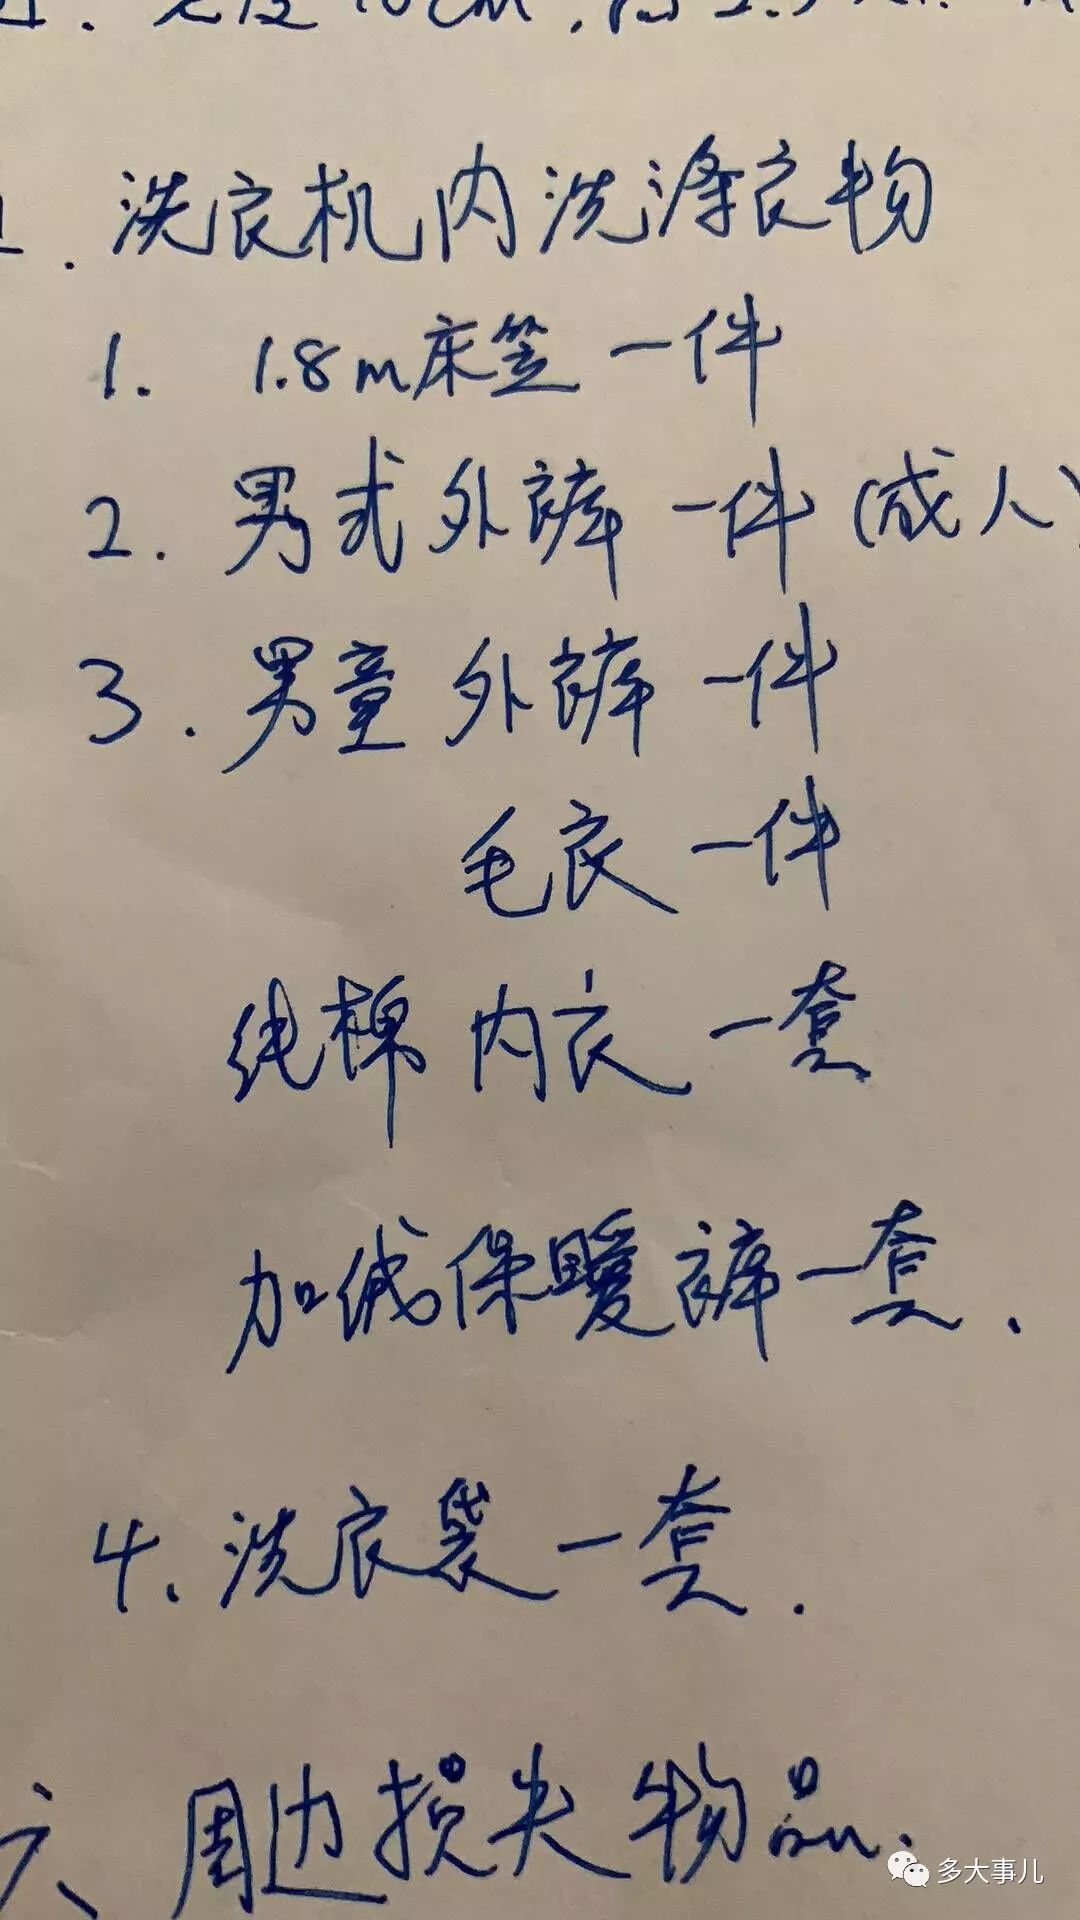 洗衣机内洗涤衣物
1. 1.8m床笠一件
2. 男式外裤一件(成人)
3. 男童外裤一件
毛衣一件
纯棉内衣一套
加绒保暖裤一套.
4. 洗衣袋一套.
六、周边损失物品.
多大事儿